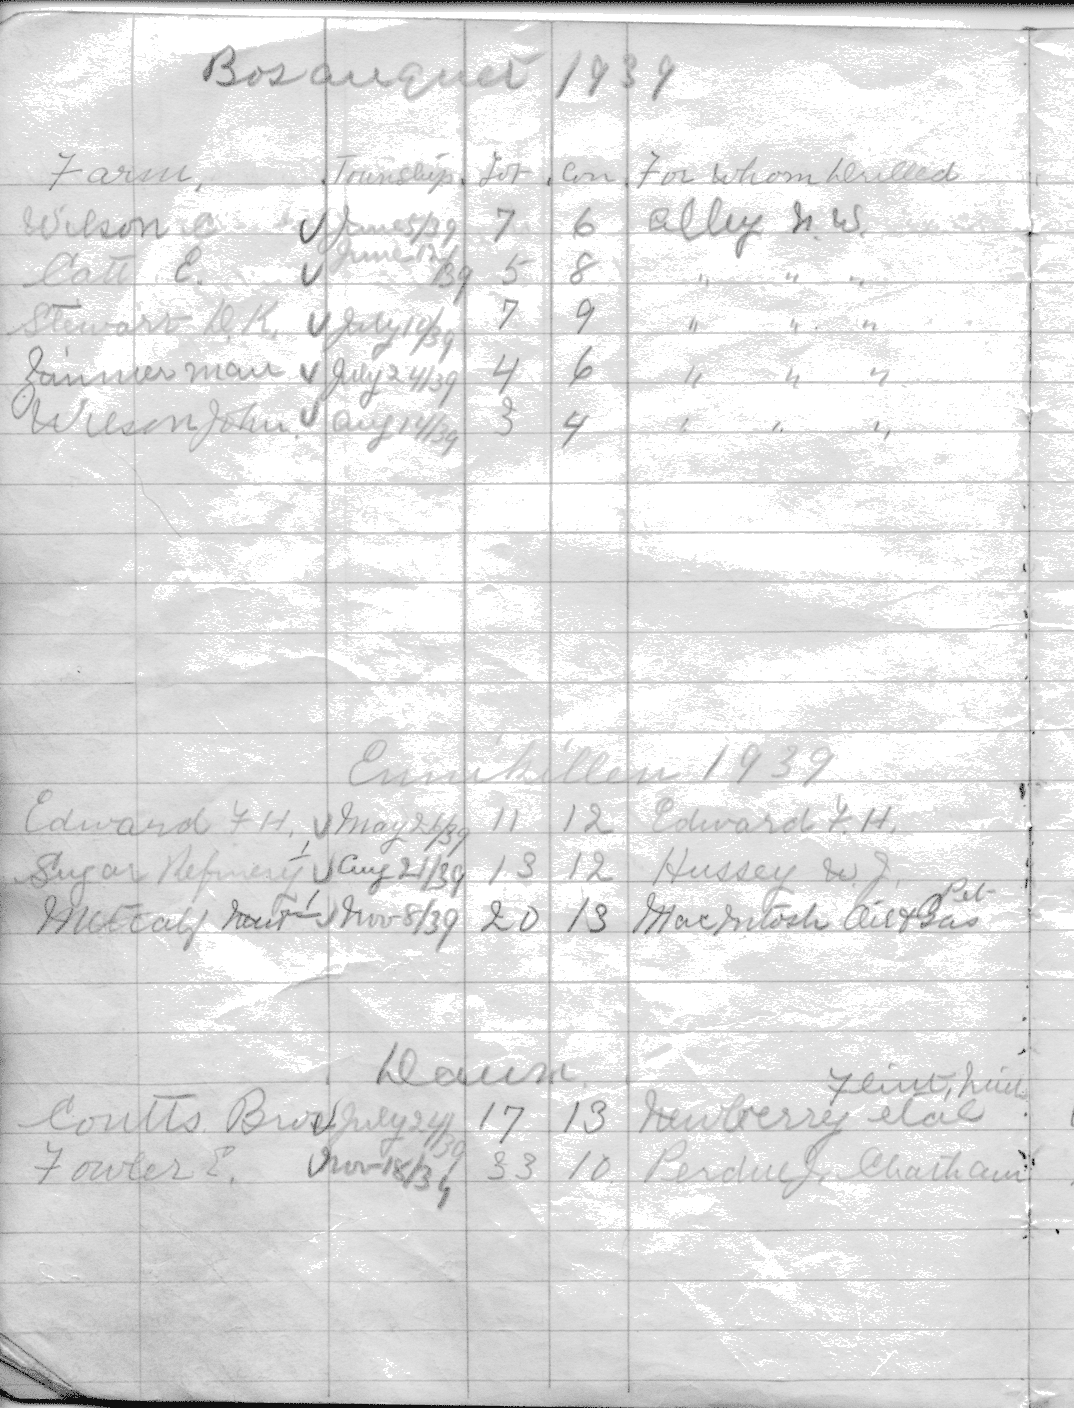 Bosanquet 1939
Farm, Township. Lot Con. For Whom Drilled
Wilson C ✓ June 5/39 7 6 Alley N. W.
Catt E. ✓ June 12/39 5 8 " " "
Stewart D. K. ✓ July 10/39 7 9 " " "
Zimmerman ✓ July 24/39 4 6 " " "
Wilson John. ✓ Aug 14/39 3 4 " " "
Enniskillen 1939
Edward F. H. ✓ May 26/39 11 12 Edward F. H.
Sugar Refinery 1 ✓ Aug 21/39 13 12 Hussey W. J.
Metcalf 1 ✓ Nov 8/39 20 13 MacIntosh Oil & Gas Pet
Dawn.
Coutts Bros ✓ July 24/39 17 13 Newberry etal Flint, Mich
Fowler E. ✓ Nov 18/39 33 10 Perdue J. Chatham